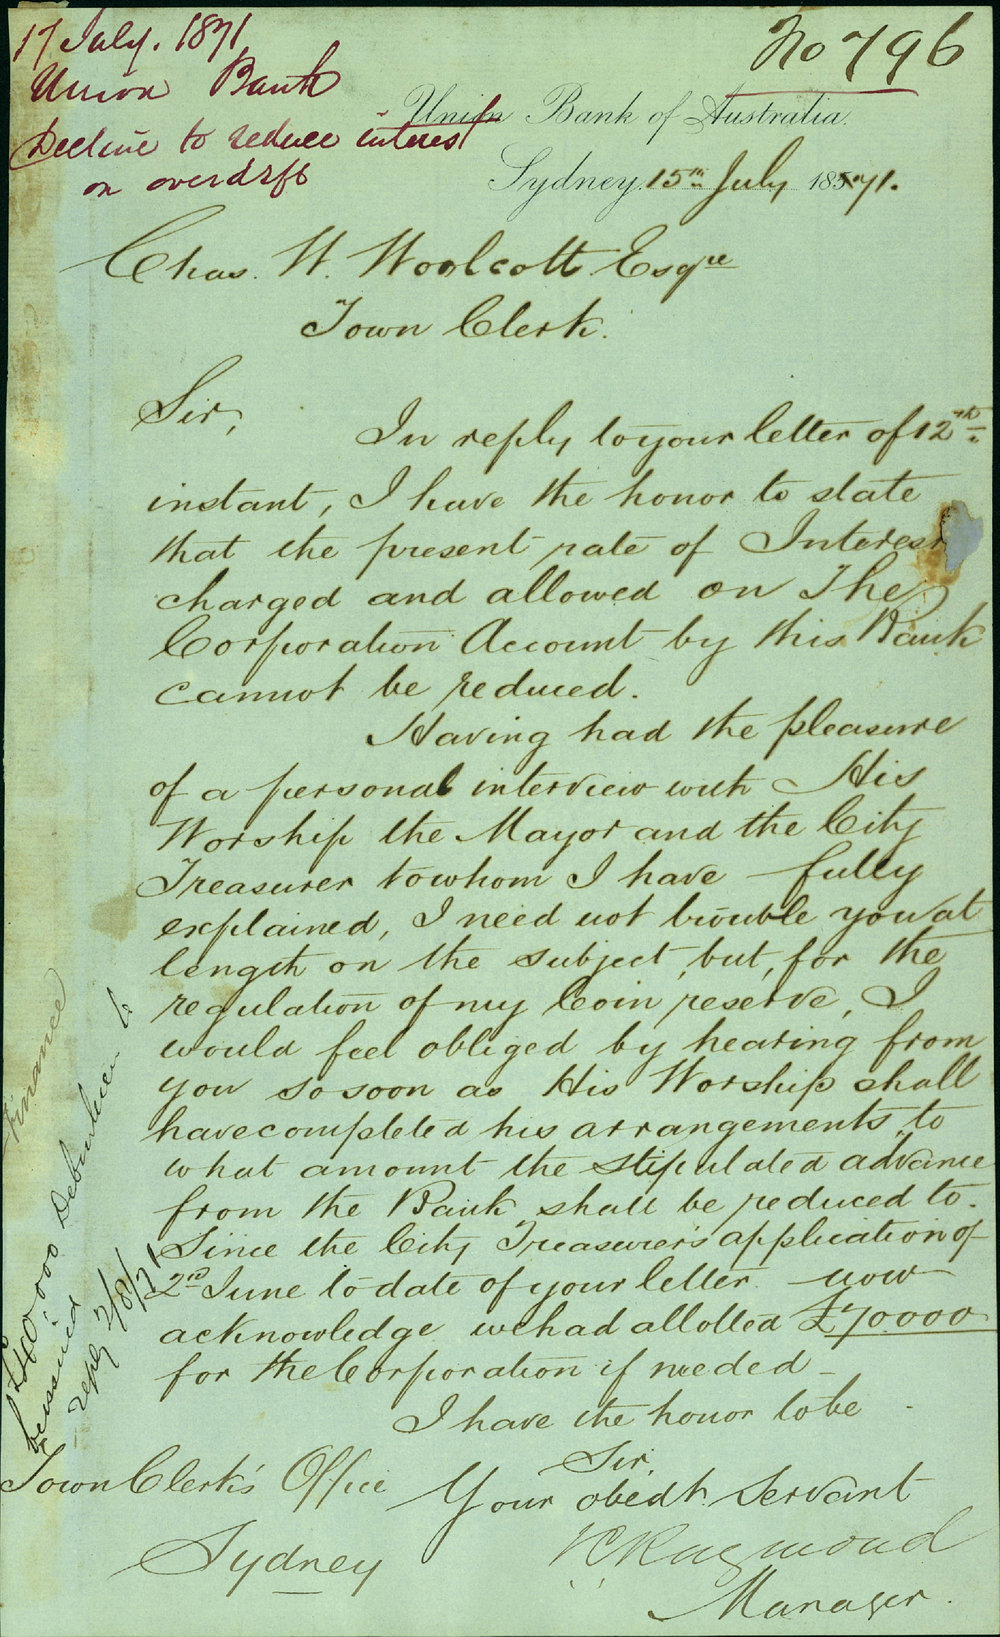 17 July. 1871
Union Bank
Decline to reduce interest
on overdrft
No 796
Union Bank of Australia.
Sydney, 15th July 1871.
Chas. W. Woolcott Esqre
Town Clerk.
Sir,
In reply to your letter of 12th
instant, I have the honor to state
that the present rate of Interest
charged and allowed on The
Corporation Account by this Bank
cannot be reduced.
Having had the pleasure
of a personal interview with His
Worship the Mayor and the City
Treasurer to whom I have fully
explained, I need not trouble you at
length on the subject, but, for the
regulation of my Coin reserve, I
would feel obliged by hearing from
you so soon as His Worship shall
have completed his arrangements, to
what amount the stipulated advance
from the Bank shall be reduced to.
Since the City Treasurer's application of
2nd June to date of your letter now
acknowledge we had allotted £70000
for the Corporation if needed
I have the honor to be
Sir,
Your obedt. Servant
Raymond
Manager.
Town Clerk's Office
Sydney
Finance
£40,000 Debentures to
be issued
reply 2/8/71